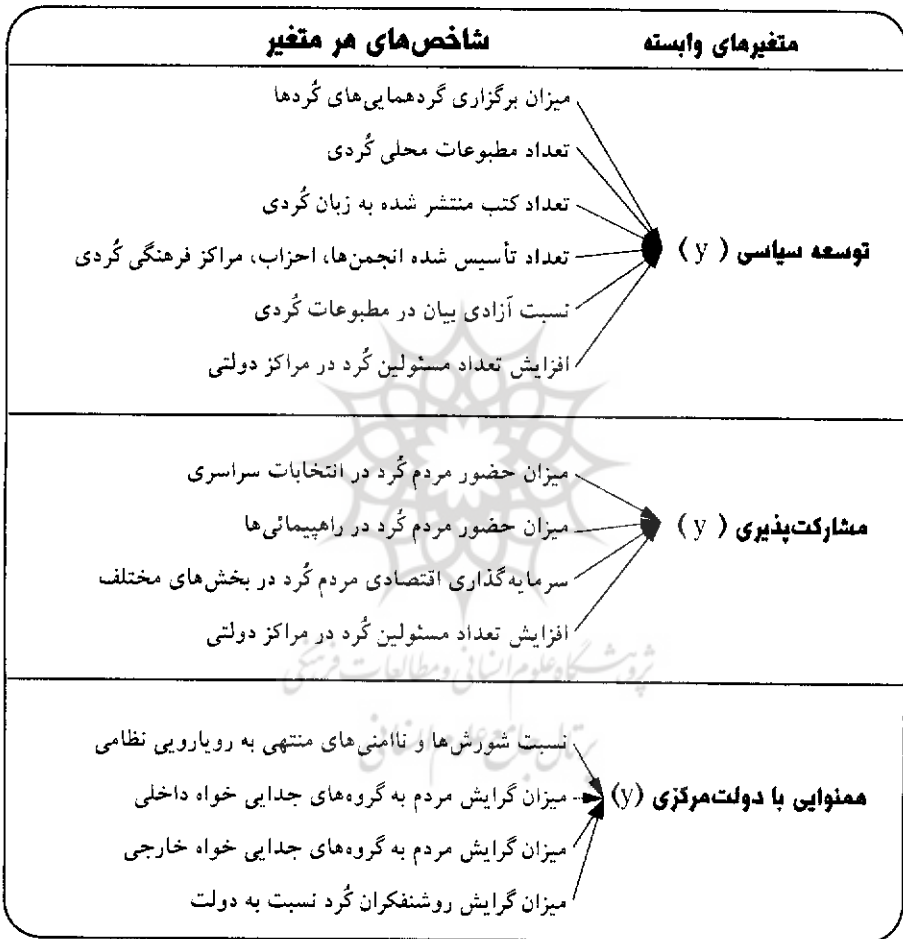 متغیرهای وابسته شاخص‌های هر متغیر
میزان برگزاری گردهمایی‌های کُردها
تعداد مطبوعات محلی کُردی
تعداد کتب منتشر شده به زبان کُردی
توسعه سیاسی ( y ) تعداد تأسیس شده انجمن‌ها، احزاب، مراکز فرهنگی کُردی
نسبت آزادی بیان در مطبوعات کُردی
افزایش تعداد مسئولین کُرد در مراکز دولتی
میزان حضور مردم کُرد در انتخابات سراسری
مشارکت‌پذیری ( y ) میزان حضور مردم کُرد در راهپیمائی‌ها
سرمایه‌گذاری اقتصادی مردم کُرد در بخش‌های مختلف
افزایش تعداد مسئولین کُرد در مراکز دولتی
پژوهشگاه علوم انسانی و مطالعات فرهنگی
پرتال جامع علوم انسانی
نسبت شورش‌ها و ناامنی‌های منتهی به رویارویی نظامی
همنوایی با دولت‌مرکزی (y) میزان گرایش مردم به گروه‌های جدایی خواه داخلی
میزان گرایش مردم به گروه‌های جدایی خواه خارجی
میزان گرایش روشنفکران کُرد نسبت به دولت